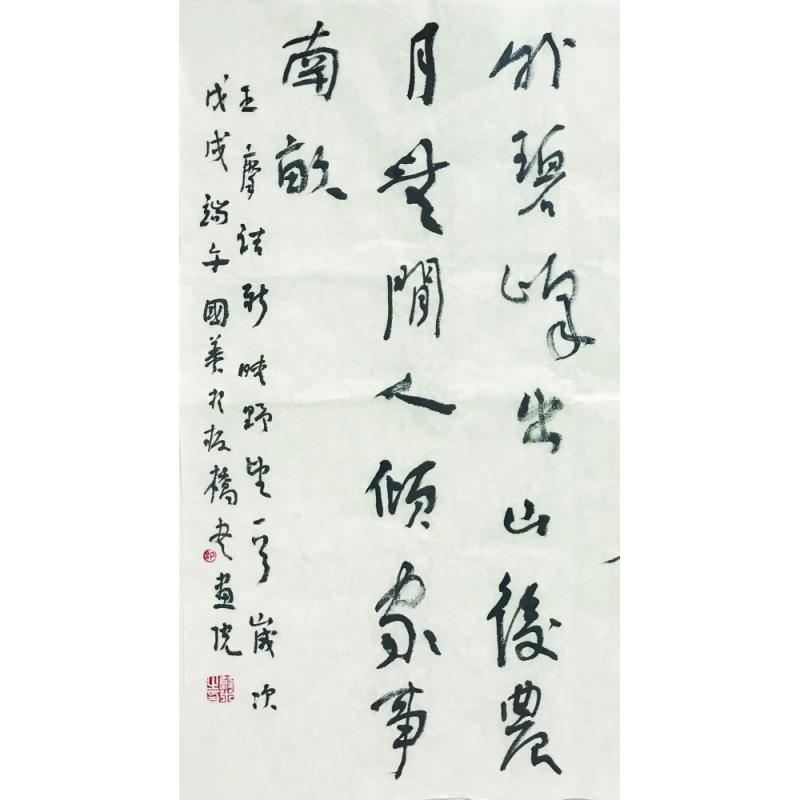 外碧峰出山後農
月無閒人傾家事
南畝
王摩詰新晴野望一首歲次
戊戌端午國美於板橋書畫院